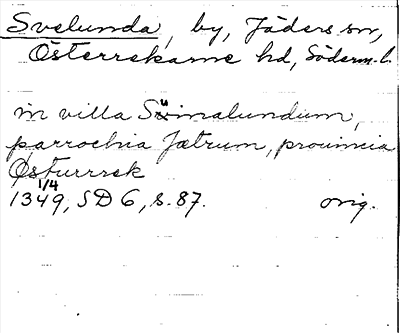 Svelunda, by, Jäders sn,
Österrekarne hd, Söderm. l.
in villa Suinalundum,
parrochia Jætrum, prouincia
Østurrek
1/4
1349, SD 6, s. 87. orig.